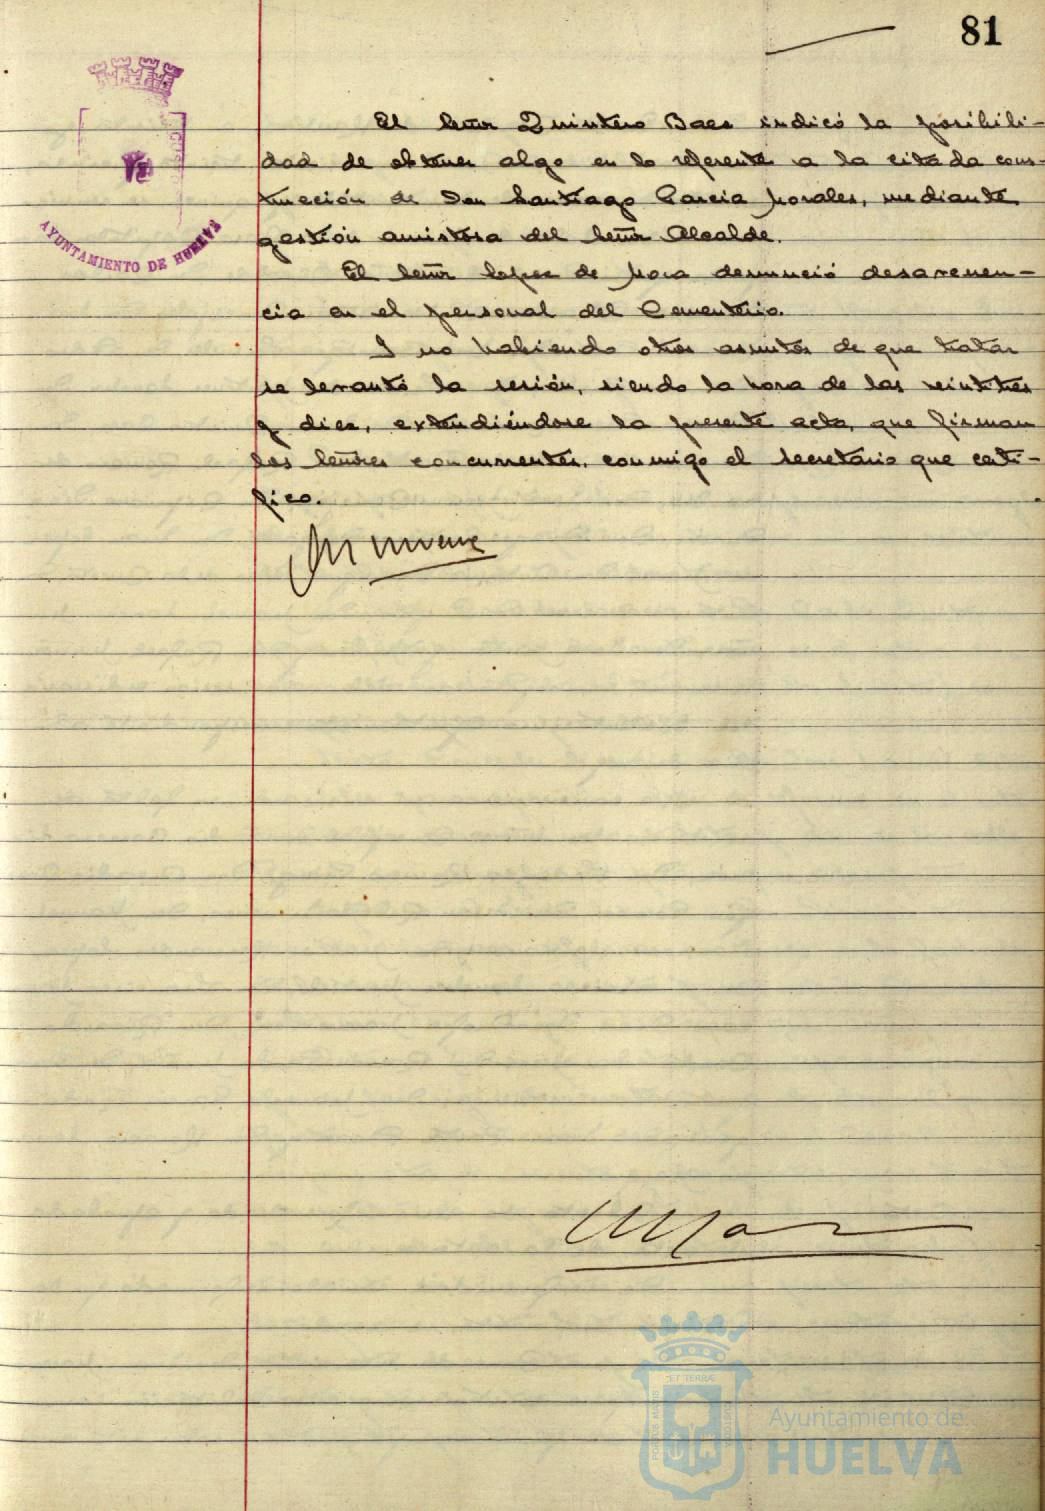 81
AYUNTAMIENTO DE HUELVA
El Señor Quintero Baez indicó la posibili-
dad de obtener algo en lo referente a la citada cons-
trucción de Don Santiago Garcia Morales, mediante
gestión amistosa del Señor Alcalde.
El Señor Lopez de Mora denunció desavenen-
cia en el personal del Cementerio.
I no habiendo otros asuntos de que tratar
se levantó la sesión, siendo la hora de las veintitres
y diez, extendiéndose la presente acta, que firman
los Señores concurrentes, conmigo el Secretario que certi-
fico.
Ayuntamiento de
HUELVA